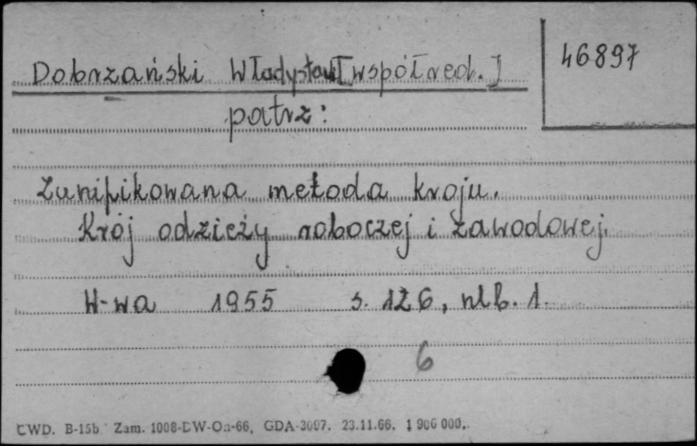 Dobrzański Władysław [współred.]
46897
patrz:
Zunifikowana metoda kroju.
Krój odzieży roboczej i zawodowej.
W-wa 1955 s. 126, nlb. 1.
6
CWD. B-15b Zam. 1008-DW-Oa-66, GDA-3007. 23.11.66. 1 906 000.